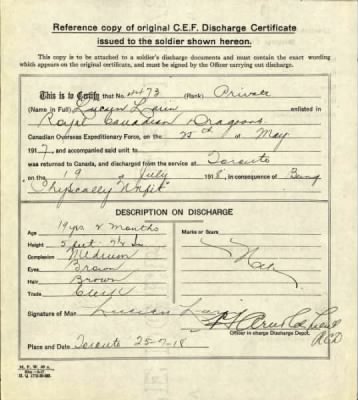 Reference copy of original C.E.F. Discharge Certificate
issued to the soldier shown hereon.
This copy is to be attached to a soldier's discharge documents and must contain the exact wording
which appears on the original certificate, and must be signed by the Officer carrying out discharge.
This is to Certify that No. 473 (Rank) Private
(Name in Full) enlisted in
Royal Canadian Dragoons
Canadian Overseas Expeditionary Force, on the 25th of May
1917, and accompanied said unit to
was returned to Canada, and discharged from the service at Toronto
on the 19 July 1918, in consequence of Being
"Physically Unfit"
DESCRIPTION ON DISCHARGE
Age 19 yrs 2 months
Height 5 feet
Complexion Medium
Eyes Brown
Hair Brown
Trade
Marks or Scars
Signature of Man Lucien
Officer in charge Discharge Depot.
Place and Date Toronto 25-7-18